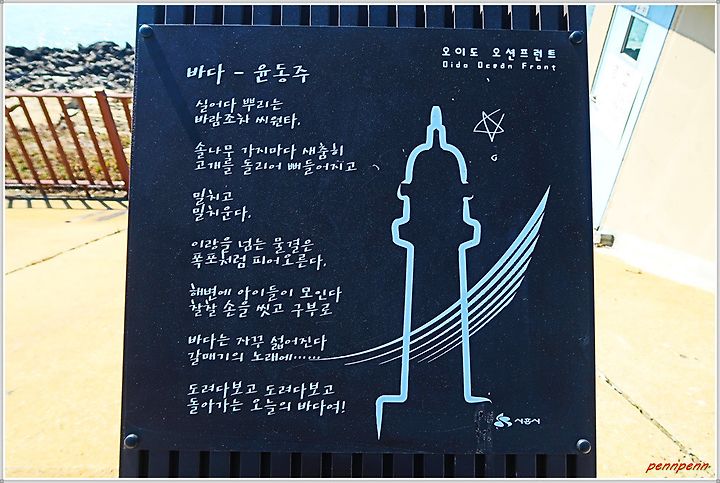 오이도 오션프런트
Oido Ocean Front
바다 - 윤동주
실어다 뿌리는
바람조차 씨원타.
솔나무 가지마다 새춤히
고개를 돌리어 뻐들어지고
밀치고
밀치운다.
이랑을 넘는 물결은
폭포처럼 피어오른다.
해변에 아이들이 모인다
찰찰 손을 씻고 구부로
바다는 자꾸 섧어진다
갈매기의 노래에……
도려다보고 도려다보고
돌아가는 오늘의 바다여!
시흥시
pennpenn